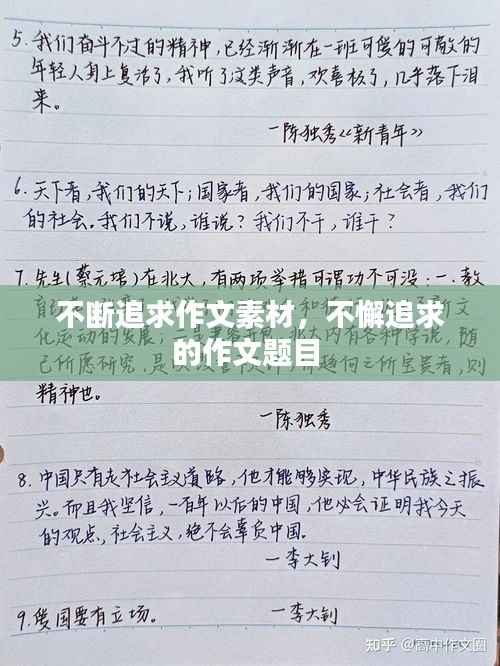 5.我们奋斗不过的精神,已经渐渐在一班可爱的可敬的
年轻人身上复活了,我听了这类声音,欢喜极了,几乎落下泪
来。
—陈独秀《新青年》
6.天下者,我们的天下;国家者,我们的国家;社会者,我们
的社会。我们不说,谁说?我们不干,谁干?
7.先生(蔡元培)在北大,有两项举措可谓功不可没:一、教
不断追求作文素材,不懈追求
的作文题目
精神也。
—陈独秀
8.中国只有走社会主义道路,他才能够实现,中华民族之振
兴。而且我坚信,一百年以后的中国,他必会证明我今天
的观点,社会主义,绝不会辜负中国。
—李大钊
9.爱国要有立场。 —李大钊
知乎 @高中作文圈